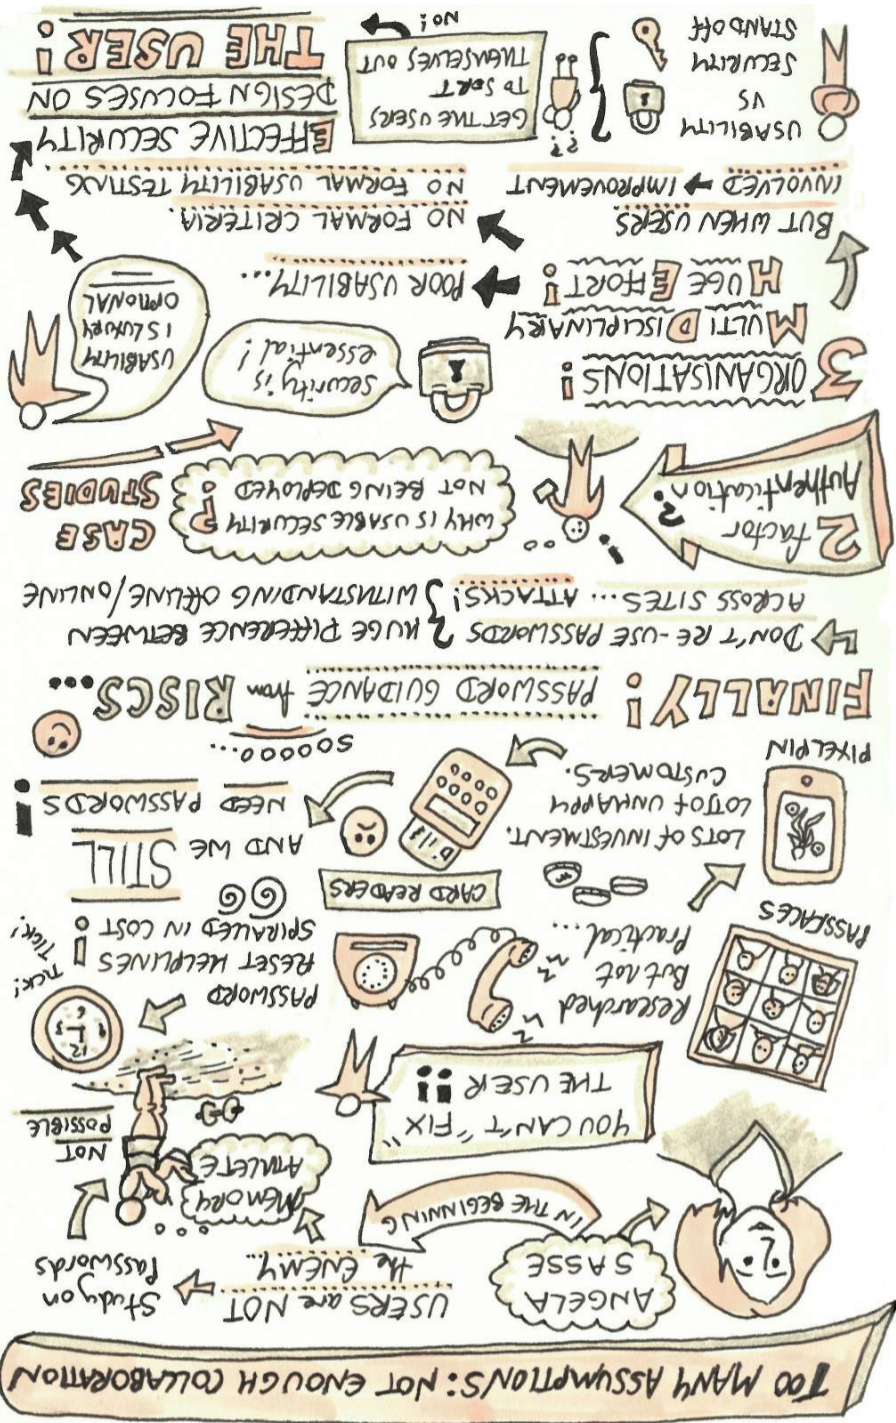 TOO MANY ASSUMPTIONS: NOT ENOUGH COLLABORATION
ANGELA
SASSE
IN THE BEGINNING
USERS are NOT
the ENEMY...
Study on
Passwords
MEMORY
ATHLETE
NOT
POSSIBLE
YOU CAN'T "FIX"
THE USER !!
PASSFACES
Researched
But not
Practical...
PASSWORD
RESET HELPLINES
SPIRALLED IN COST !
TICK!
TICK!
12
3
6
9
PIXELPIN
LOTS OF INVESTMENT.
LOT OF UNHAPPY
CUSTOMERS.
CARD READERS
AND WE STILL
NEED PASSWORDS !
SOOOO...
FINALLY! PASSWORD GUIDANCE from RISCS...
DON'T RE-USE PASSWORDS
ACROSS SITES... ATTACKS!
HUGE DIFFERENCE BETWEEN
WITHSTANDING OFFLINE/ONLINE
2 factor
Authentication?
WHY IS USABLE SECURITY
NOT BEING DEPLOYED ?
CASE
STUDIES
3 ORGANISATIONS!
MULTI DISCIPLINARY
HUGE EFFORT!
security is
essential!
USABILITY
IS LUXURY
OPTIONAL
POOR USABILITY...
BUT WHEN USERS
INVOLVED → IMPROVEMENT
NO FORMAL CRITERIA.
NO FORMAL USABILITY TESTING
USABILITY
VS
SECURITY
STANDOFF
??
GET THE USERS
TO SORT
THEMSELVES OUT
NO!
EFFECTIVE SECURITY
DESIGN FOCUSES ON
THE USER!